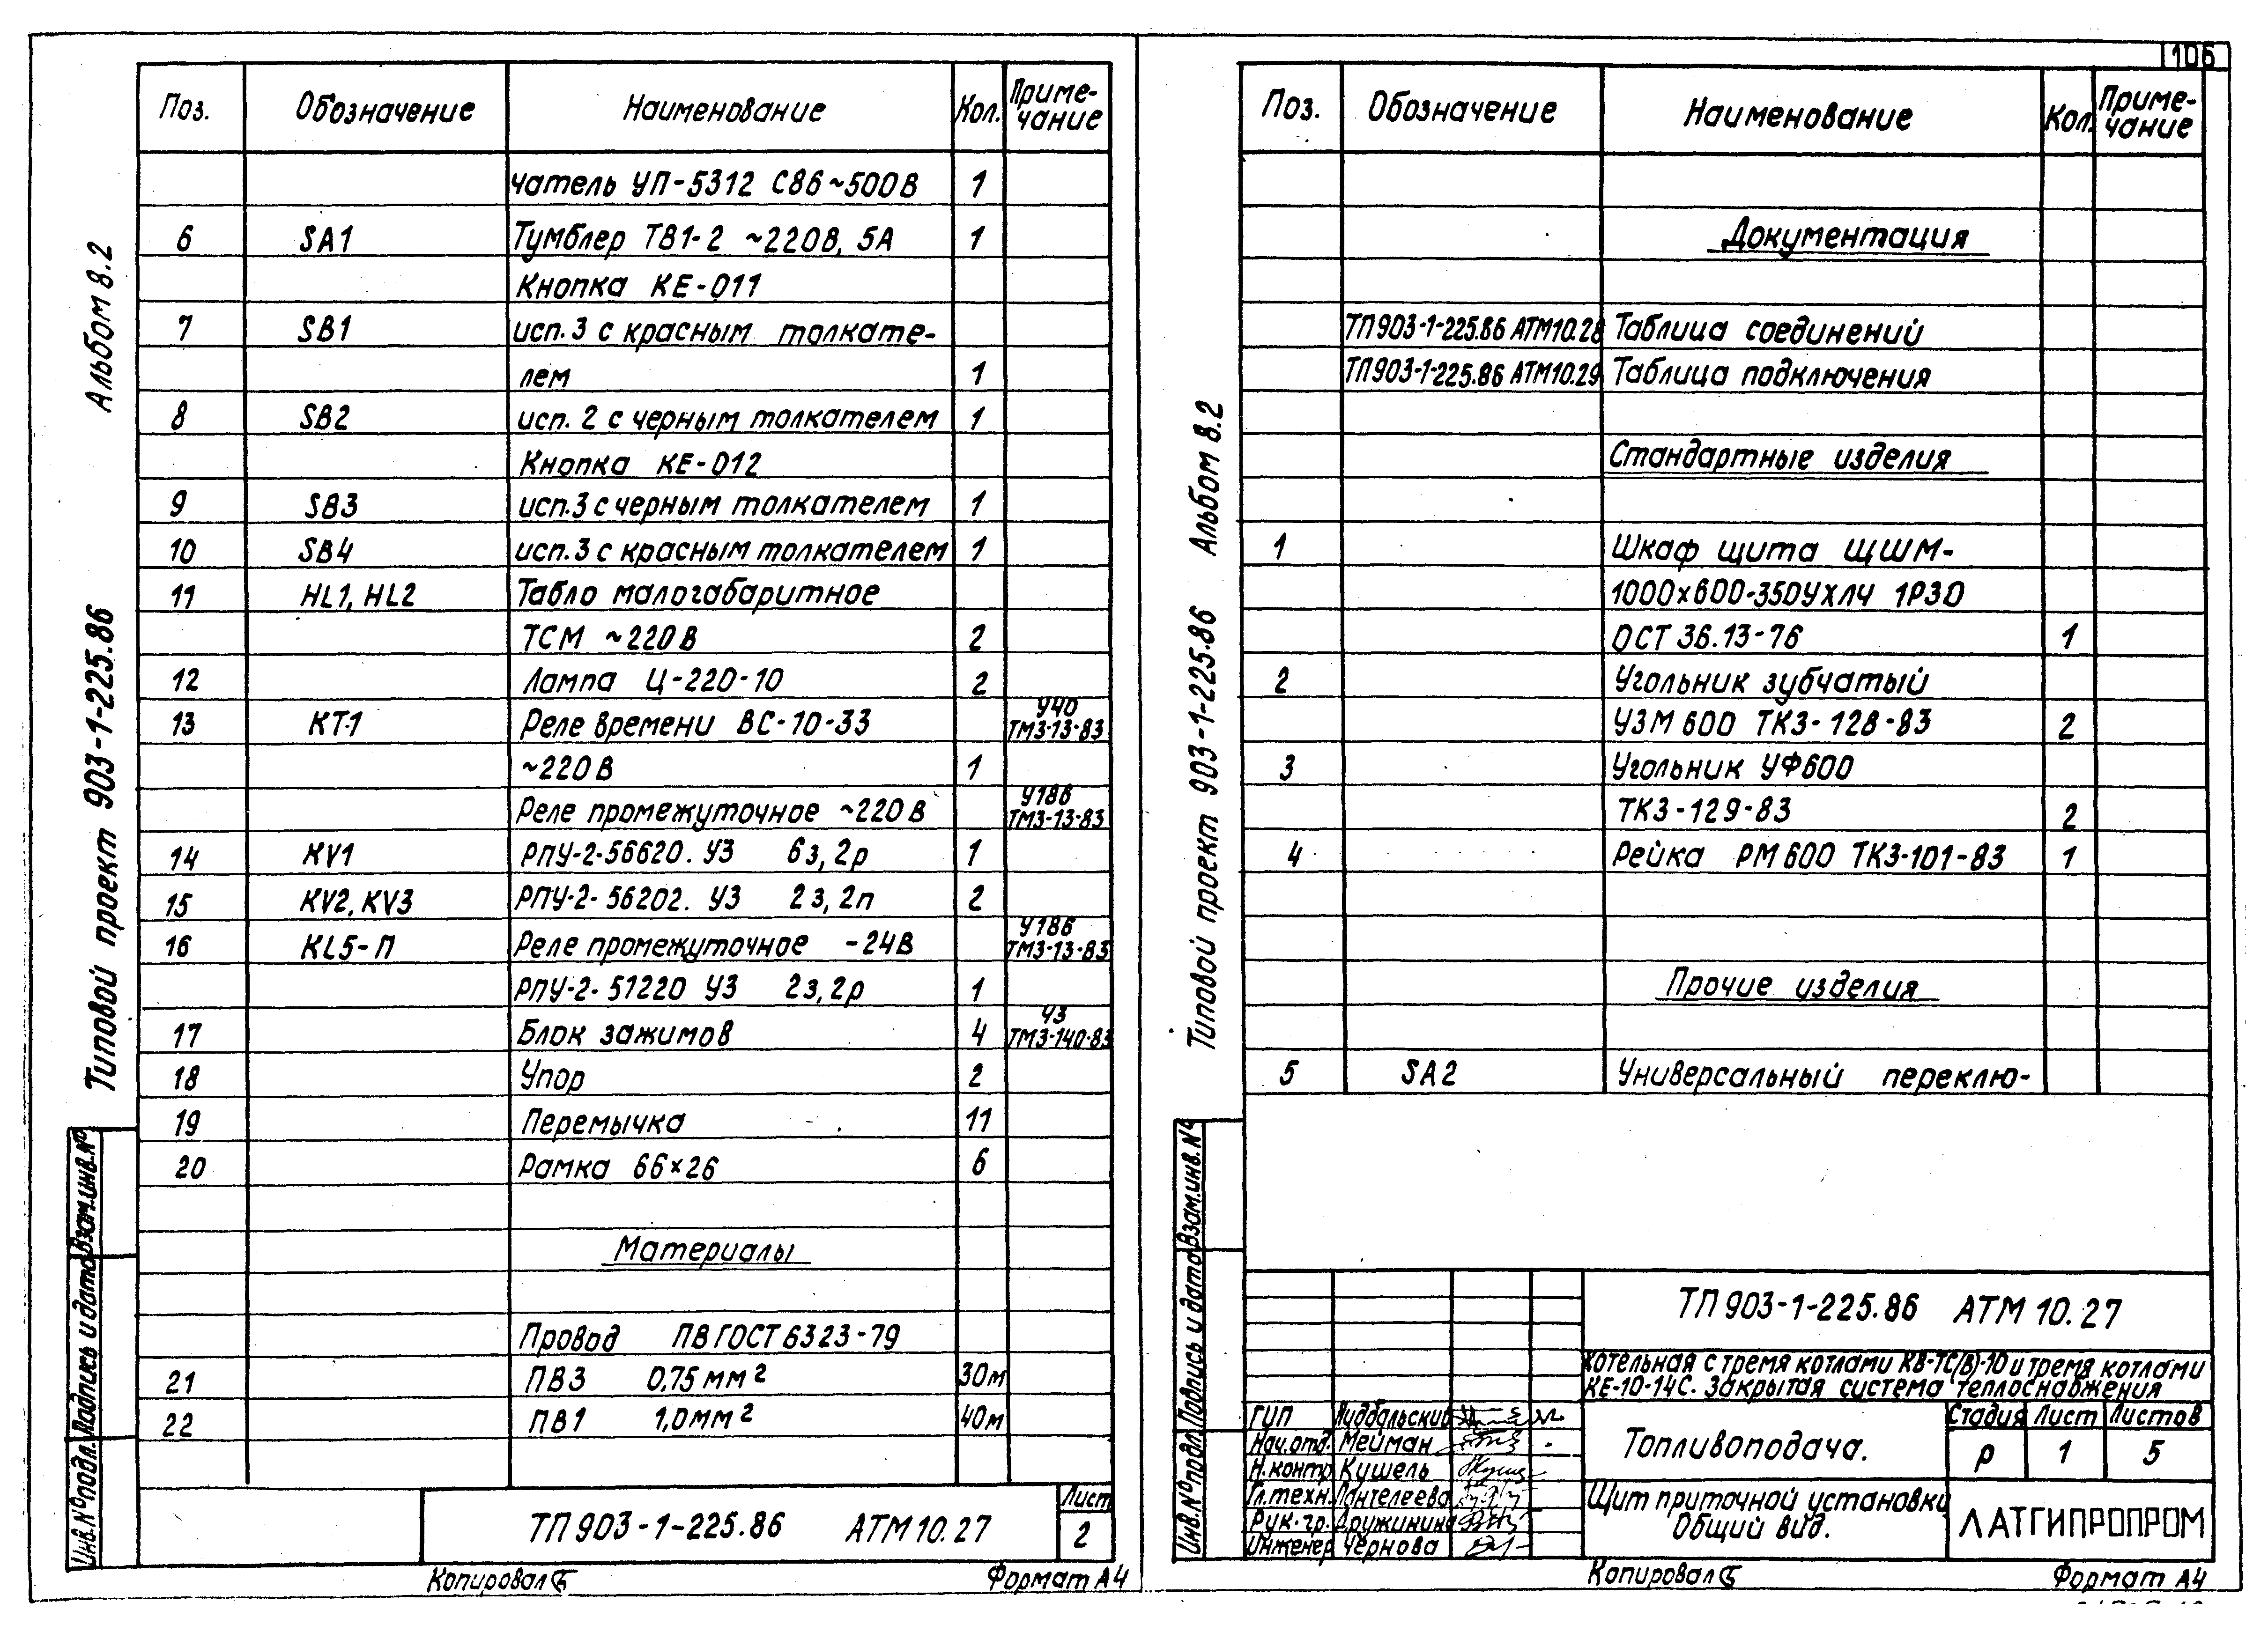 Альбом 8.2
Типовой проект 903-1-225.86
Поз. Обозначение Наименование Кол. Приме-
чание
чатель УП-5312 С86 ~500В 1
6 SA1 Тумблер ТВ1-2 ~220В, 5А 1
Кнопка КЕ-011
7 SB1 исп. 3 с красным толкате-
лем 1
8 SB2 исп. 2 с черным толкателем 1
Кнопка КЕ-012
9 SB3 исп. 3 с черным толкателем 1
10 SB4 исп. 3 с красным толкателем 1
11 HL1, HL2 Табло малогабаритное
ТСМ ~220В 2
12 Лампа Ц-220-10 2
13 КТ-1 Реле времени ВС-10-33 У40
ТМ3-13-83
~220В 1
Реле промежуточное ~220В У186
ТМ3-13-83
14 KV1 РПУ-2-56620. У3 6з, 2р 1
15 KV2, KV3 РПУ-2-56202. У3 2з, 2п 2
16 KL5-П Реле промежуточное -24В У186
ТМ3-13-83
РПУ-2-51220 У3 2з, 2р 1
17 Блок зажимов 4 У3
ТМ3-140-83
18 Упор 2
19 Перемычка 11
20 Рамка 66×26 6
Материалы
Провод ПВ ГОСТ 6323-79
21 ПВ3 0,75 мм² 30м
22 ПВ1 1,0 мм² 40м
Инв.№подл. Подпись и дата Взам.инв.№
ТП 903-1-225.86 АТМ 10.27
Лист
2
Копировал
Формат А4
106
Альбом 8.2
Типовой проект 903-1-225.86
Поз. Обозначение Наименование Кол. Приме-
чание
Документация
ТП903-1-225.86 АТМ10.28 Таблица соединений
ТП903-1-225.86 АТМ10.29 Таблица подключения
Стандартные изделия
1 Шкаф щита ЩШМ-
1000×600-350УХЛ4 1Р30
ОСТ 36.13-76 1
2 Угольник зубчатый
УЗМ 600 ТК3-128-83 2
3 Угольник УФ600
ТК3-129-83 2
4 Рейка РМ600 ТК3-101-83 1
Прочие изделия
5 SA2 Универсальный переклю-
Инв.№подл. Подпись и дата Взам.инв.№
ТП 903-1-225.86 АТМ 10.27
Котельная с тремя котлами КВ-ТС(В)-10 и тремя котлами
КЕ-10-14С. Закрытая система теплоснабжения
ГИП
Нач.отд. Мейман
Н.контр Кушель
Гл.техн. Пантелеева
Рук.гр. Дружинина
Инженер Чернова
Топливоподача.
Стадия Лист Листов
р 1 5
Щит приточной установки
Общий вид.
ЛАТГИПРОПРОМ
Копировал
Формат А4